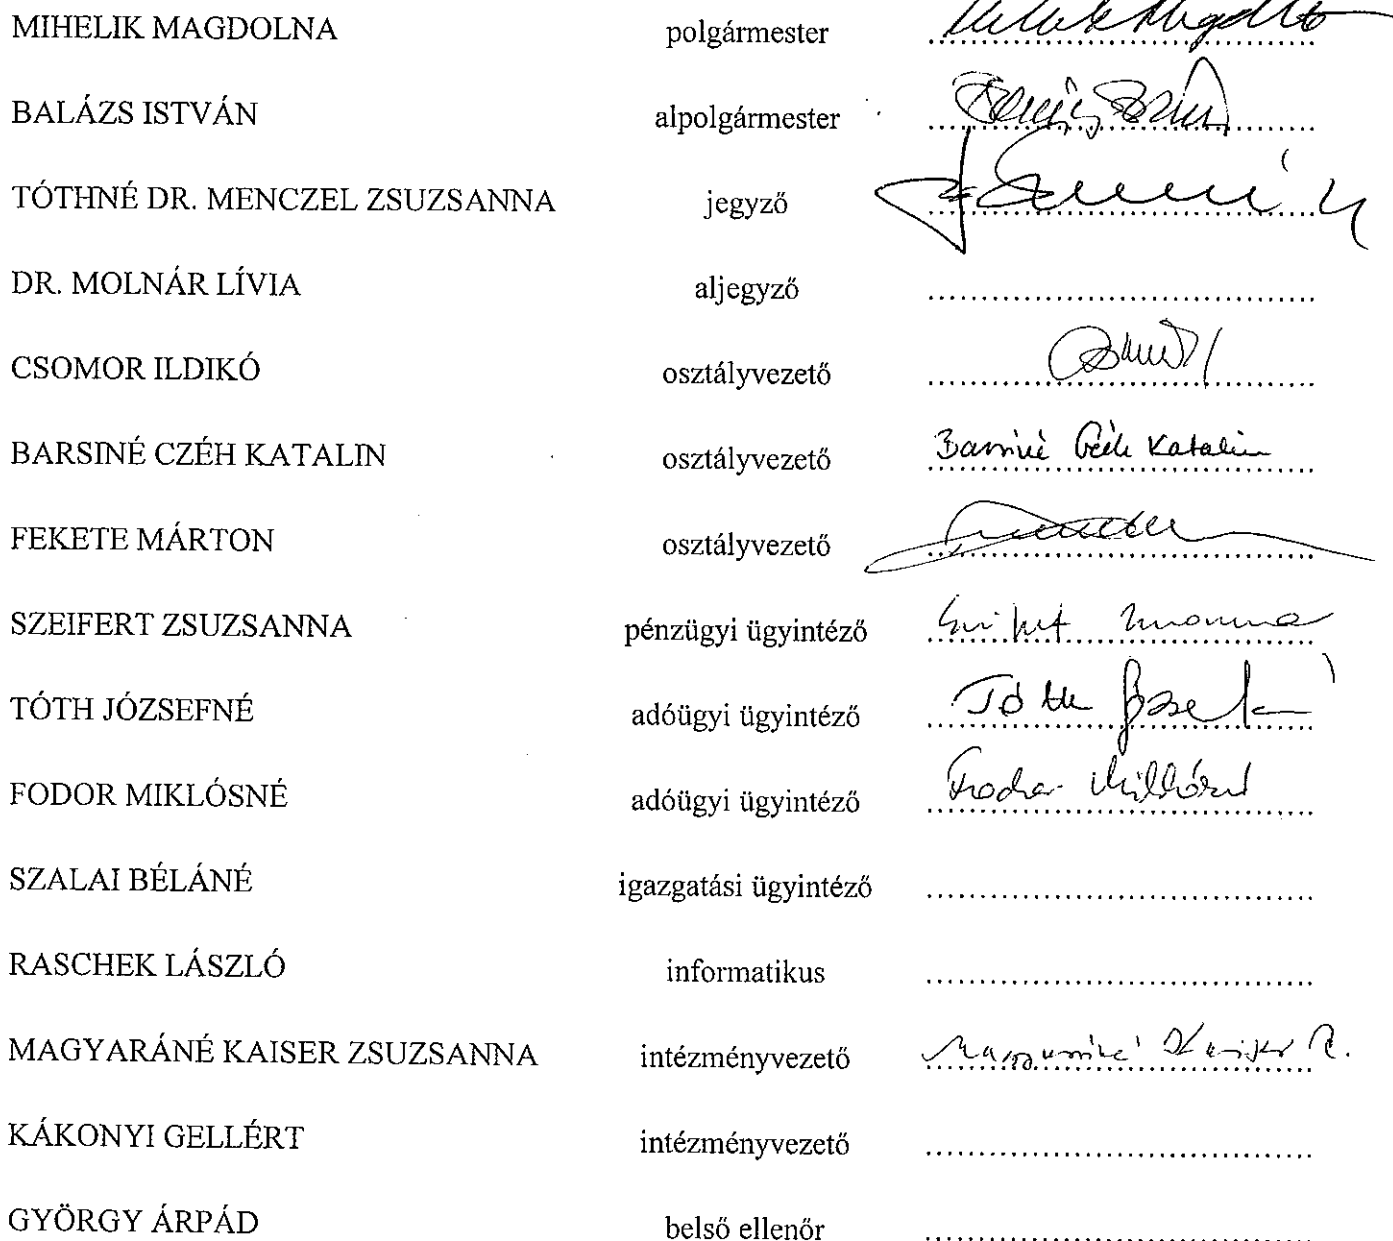 MIHELIK MAGDOLNA polgármester ........................................
BALÁZS ISTVÁN alpolgármester ........................................
TÓTHNÉ DR. MENCZEL ZSUZSANNA jegyző ........................................
DR. MOLNÁR LÍVIA aljegyző ........................................
CSOMOR ILDIKÓ osztályvezető ........................................
BARSINÉ CZÉH KATALIN osztályvezető Barsiné Czéh Katalin
FEKETE MÁRTON osztályvezető ........................................
SZEIFERT ZSUZSANNA pénzügyi ügyintéző ........................................
TÓTH JÓZSEFNÉ adóügyi ügyintéző Tóth Józsefné
FODOR MIKLÓSNÉ adóügyi ügyintéző Fodor Miklósné
SZALAI BÉLÁNÉ igazgatási ügyintéző ........................................
RASCHEK LÁSZLÓ informatikus ........................................
MAGYARÁNÉ KAISER ZSUZSANNA intézményvezető ........................................
KÁKONYI GELLÉRT intézményvezető ........................................
GYÖRGY ÁRPÁD belső ellenőr ........................................